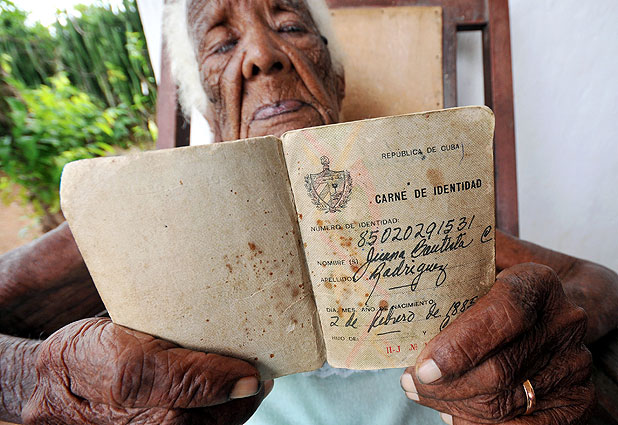 REPÚBLICA DE CUBA
CARNE DE IDENTIDAD
NUMERO DE IDENTIDAD:
85020291531
NOMBRE (S) Juana Bautista C
APELLIDO Rodriguez
DIA, MES, AÑO DE NACIMIENTO:
2 de febrero de 1885
HIJO DE Y
II-J Nº